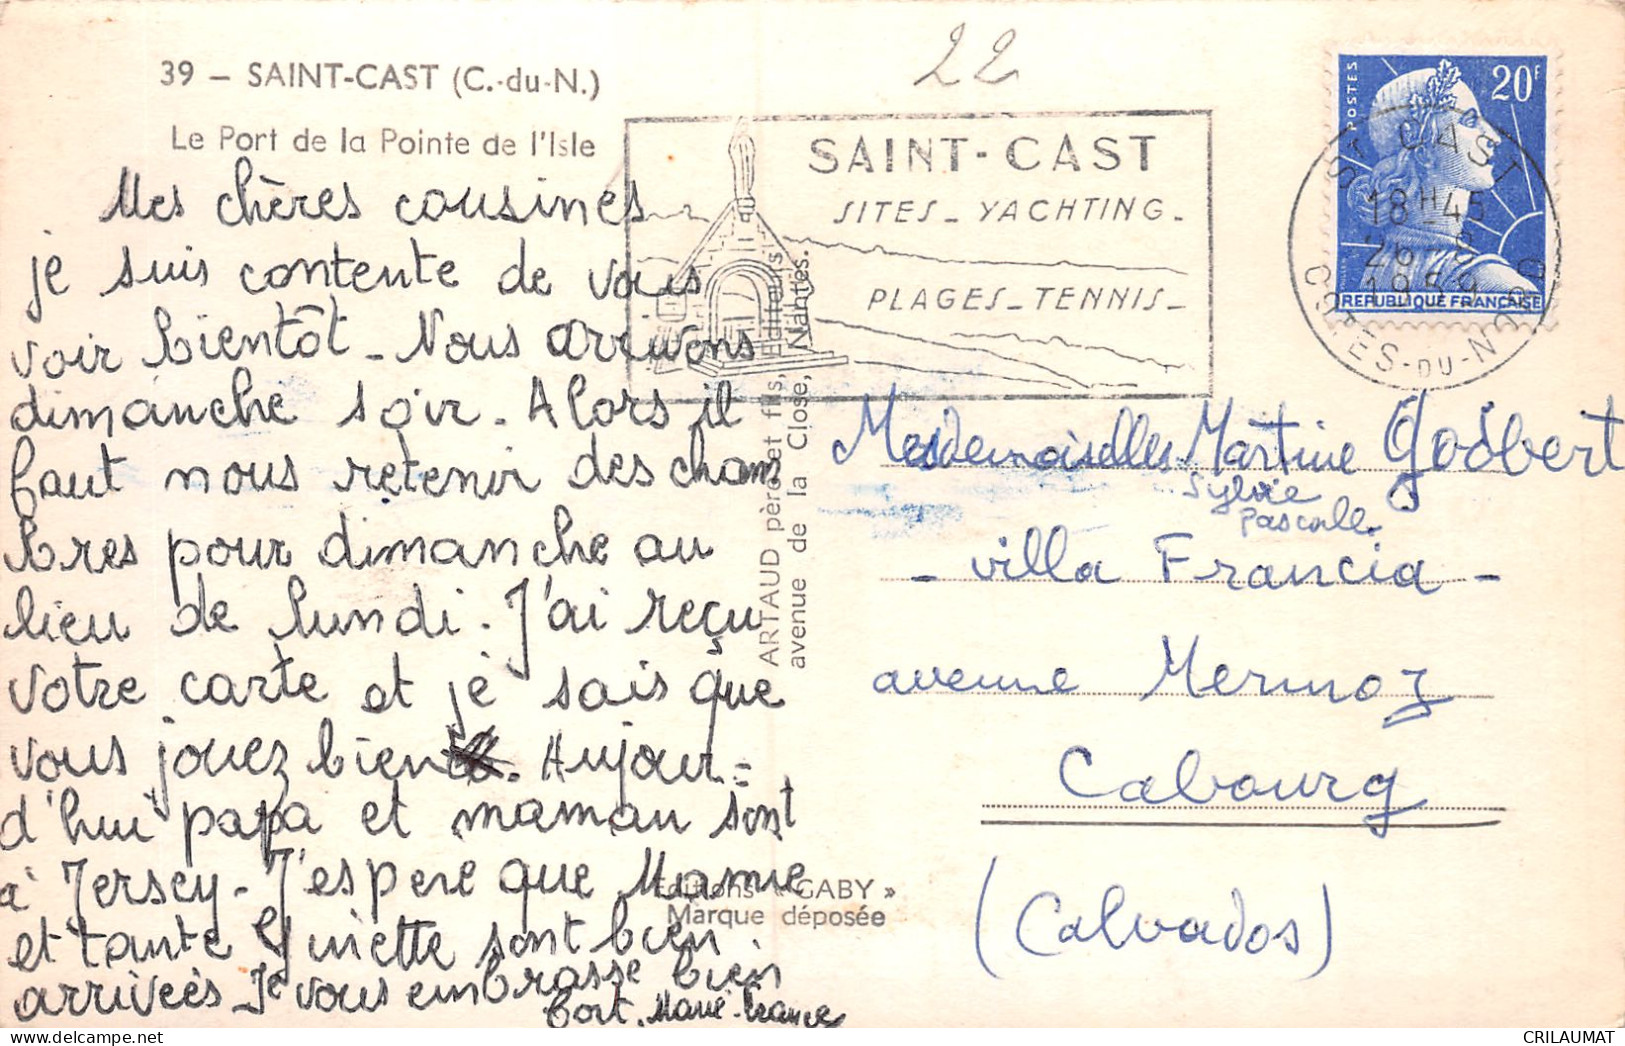 22
39 – SAINT-CAST (C.-du-N.)
Le Port de la Pointe de l'Isle
Mes chères cousines
je suis contente de vous
voir bientôt - Nous arrivons
dimanche soir. Alors il
faut nous retenir des cham
bres pour dimanche au
lieu de lundi. J'ai reçu
votre carte et je sais que
vous jouez bien. Aujour=
d'hui papa et maman sont
à Jersey - J'espere que Mamie
et tante Ginette sont bien
arrivées. Je vous embrasse bien
fort. Marie-France
ARTAUD père et fils, Editeurs
avenue de la Close, Nantes.
Editions « GABY »
Marque déposée
SAINT-CAST
SITES - YACHTING -
PLAGES - TENNIS -
POSTES
20F
REPUBLIQUE FRANÇAISE
ST CAST
18H45
1959
COTES-DU-NORD
Mesdemoiselles Martine Godbert
Sylvie
Pascale
- villa Francia -
avenue Mermoz
Cabourg
(Calvados)
CRILAUMAT